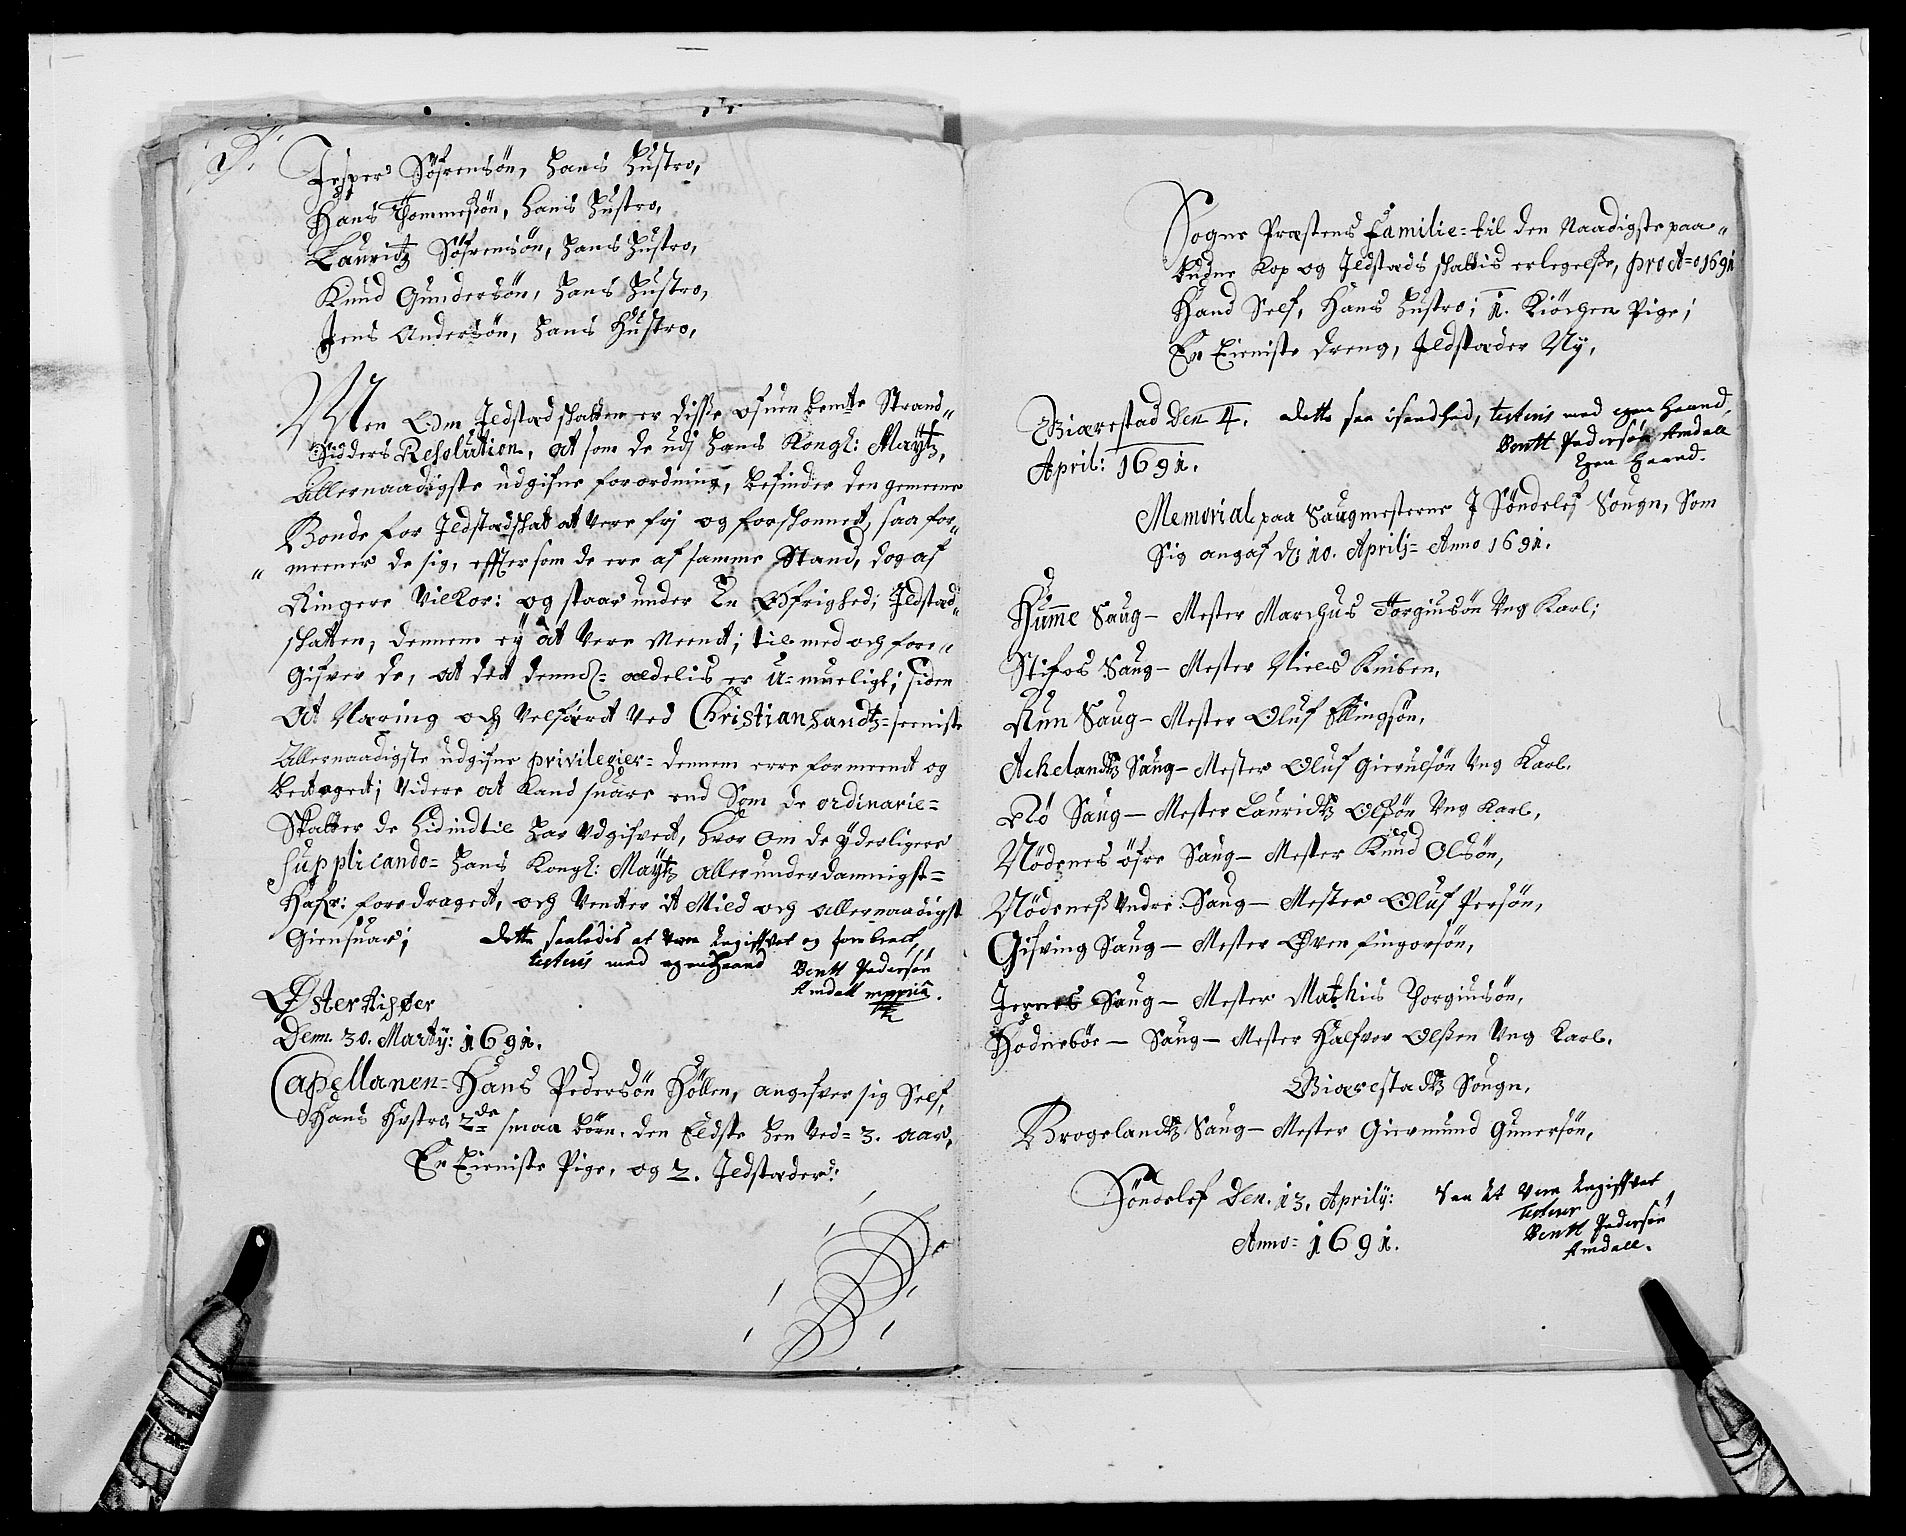 Jesper Söfrensön, hans hustro,
Hans Thommesön, hans hustro,
Lauritz Söfrensön, hans hustro,
Knud Gundersön, hans hustro,
Jens Andersön, hans hustro,
Men Om Jldstad skatten er disse ofuen bemte Strand„
Sidders Resolution, at som de udj hans Kongl: Maytz,
Allernaadigste udgifne forordning, befinder den gemeene
Bonde for Jldstædskat at vere frj og forskonnet, saa for„
„ meener de sig, effter som de ere af samme Stand, dog af
Ringere Vilkor: og staar under En Øfrighed; Jldstæd„
skatten, dennem ey at vere meent; til med och fore„
Gifver de, at det dennd aldelis er U=mueligt; siden
At Næring och Velfært ved Christiansandtz=
Allernaadigste udgifne privilegier= dennem erre formeent og
betaget; Videre at kand suare end Som de ordinarie=
Skatter de hidindtil har udgifvet, hvor om de ÿderligere
supplicando= hans Kongl: Maÿtz allerunderdannigst=
Hafr: foredraget, och Venter it Mild och allernaadigst
Giensuar;
Dette saaledis at vere Angiffvet og forebract,
testeris med egen Haand Bentt Pedersön
Amdall mppria.
Østerrisøer
Dem. 30. Martÿ: 1691.
Capellanen= Hans Pedersön Höllen, angifver sig Self,
Hans Hustro 2de smaa börn. den Eldste hen Ved= 3. aar,
En Tieniste Pige, og 2. Jldstæder:
Sogne Præstens Familie= til den Naadigste paa„
budne Kop og Jldstæds skattis erlegelsse, pro Ao 1691
Hand Self, Hans hustro; 1. Kiöchen Pige;
En Tieniste dreng, Jldstæder Ny,
Giærestad Den 4.
April: 1691.
Dette saa i sandhed, testeris med egen haand,
Bentt Pedersön Amdall
Egen haand.
Memorial paa Saugmesterne J Söndelef Sougn, Som
Sig angaf d 10. Aprilj= Anno 1691.
Humme Saug— Mester Marchus Torgiusön Ung Karl;
Stifos Saug— Mester Niels Kniben.
Run Saug— Mester Oluf Ellingsön,
Achelandtz Saug— Mester Oluf Giervulsön Ung Karl.
Rö Saug— Mester Lauridtz Olsön Ung Karl,
Nödenes öfre Saug— Mester Knud Olsön,
Nödenes Undre Saug— Mester Oluf Persön,
Gifving Saug— Mester Øven Fingorsön,
Jernes Saug— Mester Mathis Thorgiusön,
Hödneböe— Saug— Mester Halfvor Olssen Ung Karl.
Giærestadtz Sougn,
Brogelandtz Saug— Mester Giermund Gunersön,
Söndelef Den. 13. Aprilÿ:
Anno= 1691.
Saa At vere Angiffvet
testerer
Bentt Pedersön
Amdall.